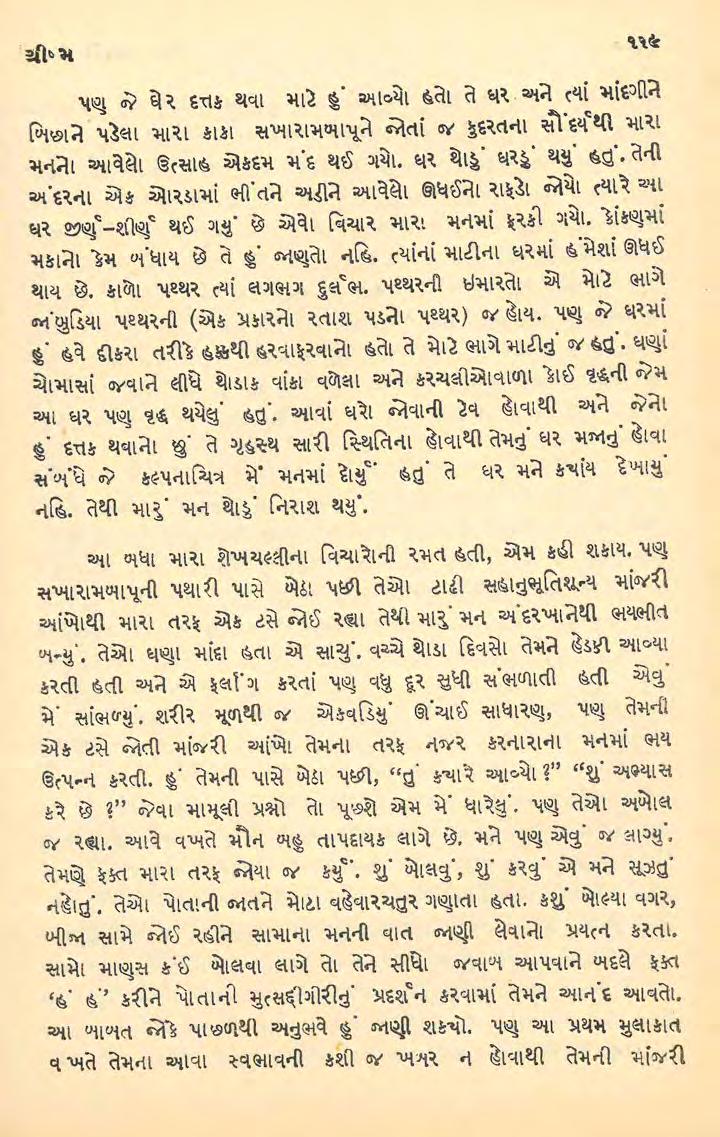 ગ્રીષ્મ
૧૨૯
પણ જે ઘેર દત્તક થવા માટે હું આવ્યો હતો તે ઘર અને ત્યાં માંદગીને
બિછાને પડેલા મારા કાકા સખારામબાપૂને જોતાં જ કુદરતના સૌંદર્યથી મારા
મનનો આવેલો ઉત્સાહ એકદમ મંદ થઈ ગયો. ઘર થોડું ઘરડું થયું હતું. તેની
અંદરના એક ઓરડામાં ભીંતને અડીને આવેલો ઊધઈનો રાફડો જોયો ત્યારે આ
ઘર જીર્ણ-શીર્ણ થઈ ગયું છે એવો વિચાર મારા મનમાં ફરકી ગયો. કોંકણમાં
મકાનો કેમ બંધાય છે તે હું જાણતો નહિ. ત્યાંનાં માટીના ઘરમાં હંમેશાં ઊધઈ
થાય છે. કાળો પથ્થર ત્યાં લગભગ દુર્લભ. પથ્થરની ઇમારતો એ મોટે ભાગે
જાંબુડિયા પથ્થરની (એક પ્રકારનો રતાશ પડતો પથ્થર) જ હોય. પણ જે ઘરમાં
હું હવે દીકરા તરીકે હક્કથી હરવાફરવાનો હતો તે મોટે ભાગે માટીનું જ હતું. ઘણાં
ચોમાસાં જવાને લીધે થોડાક વાંકા વળેલા અને કરચલીઓવાળા કોઈ વૃદ્ધની જેમ
આ ઘર પણ વૃદ્ધ થયેલું હતું. આવાં ઘરો જોવાની ટેવ હોવાથી અને જેનો
હું દત્તક થવાનો છું તે ગૃહસ્થ સારી સ્થિતિના હોવાથી તેમનું ઘર મજાનું હોવા
સંબંધે જે કલ્પનાચિત્ર મેં મનમાં દોર્યું હતું તે ઘર મને કયાંય દેખાયું
નહિ. તેથી મારું મન થોડું નિરાશ થયું.
આ બધા મારા શેખચલ્લીના વિચારોની રમત હતી, એમ કહી શકાય. પણ
સખારામબાપૂની પથારી પાસે બેઠા પછી તેઓ ટાઢી સહાનુભૂતિશૂન્ય માંજરી
આંખોથી મારા તરફ એક ટસે જોઈ રહ્યા તેથી મારું મન અંદરખાનેથી ભયભીત
બન્યું. તેઓ ઘણા માંદા હતા એ સાચું. વચ્ચે થોડા દિવસો તેમને હેડકી આવ્યા
કરતી હતી અને એ ફર્લાંગ કરતાં પણ વધુ દૂર સુધી સંભળાતી હતી એવું
મેં સાંભળ્યું. શરીર મૂળથી જ એકવડિયું ઊંચાઈ સાધારણ, પણ તેમની
એક ટસે જોતી માંજરી આંખો તેમના તરફ નજર કરનારાના મનમાં ભય
ઉત્પન્ન કરતી. હું તેમની પાસે બેઠા પછી, “તું કયારે આવ્યો ?” “શું અભ્યાસ
કરે છે ?” જેવા મામૂલી પ્રશ્નો તો પૂછશે એમ મેં ધારેલું. પણ તેઓ અબોલ
જ રહ્યા. આવે વખતે મૌન બહુ તાપદાયક લાગે છે. મને પણ એવું જ લાગ્યું.
તેમણે ફક્ત મારા તરફ જોયા જ કર્યું. શું બોલવું, શું કરવું એ મને સૂઝતું
નહોતું. તેઓ પોતાની જાતને મોટા વહેવારચતુર ગણાતા હતા. કશું બોલ્યા વગર,
બીજા સામે જોઈ રહીને સામાના મનની વાત જાણી લેવાનો પ્રયત્ન કરતા.
સામો માણસ કંઈ બોલવા લાગે તો તેને સીધો જવાબ આપવાને બદલે ફક્ત
‘હં હં’ કરીને પોતાની મુત્સદ્દીગીરીનું પ્રદર્શન કરવામાં તેમને આનંદ આવતો.
આ બાબત જોકે પાછળથી અનુભવે હું જાણી શકયો. પણ આ પ્રથમ મુલાકાત
વખતે તેમના આવા સ્વભાવની કશી જ ખબર ન હોવાથી તેમની માંજરી